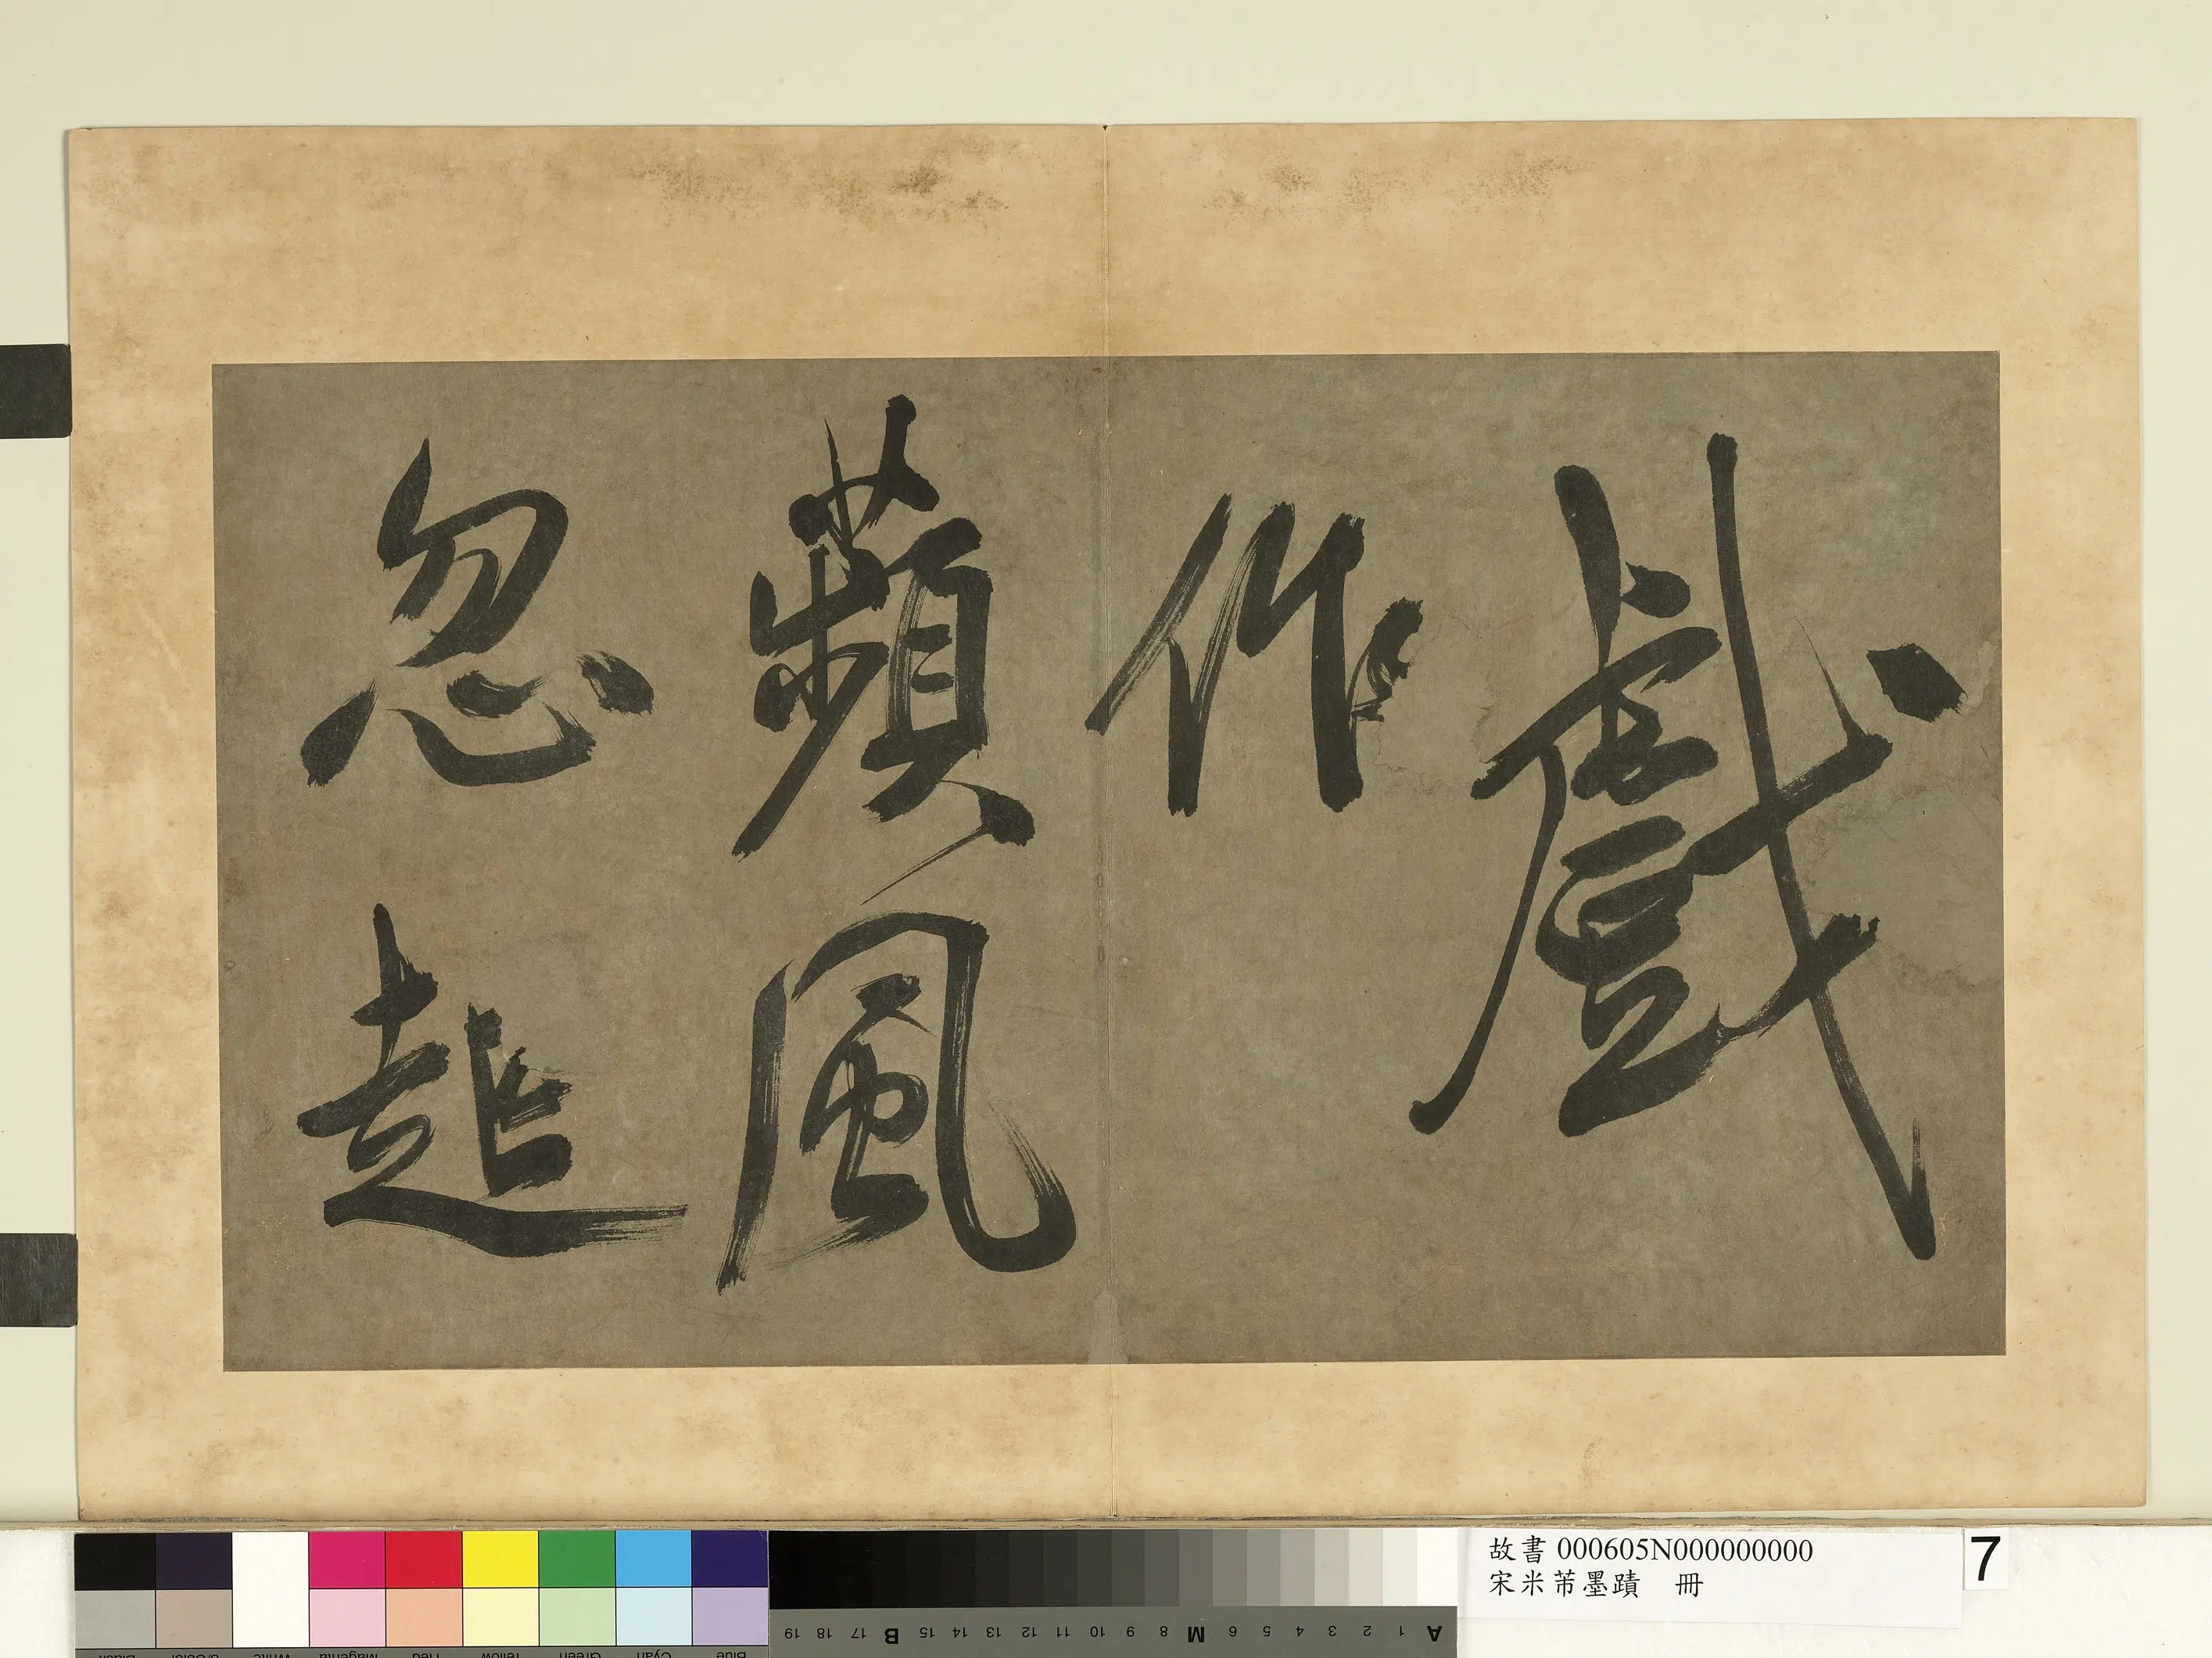 戲
作
蘋風
忽起
故書 000605N000000000
宋米芾墨蹟 冊
7
A 1 2 3 4 5 6 M 8 9 10 11 12 13 14 15 B 17 18 19
Blue Cyan Green Yellow Red Magenta White 3/Color Black